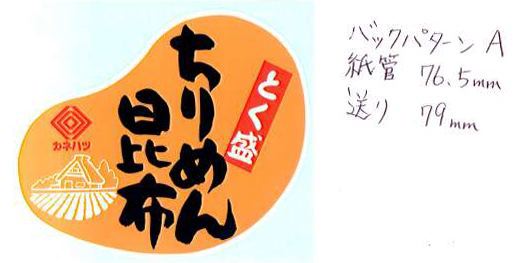 とく盛
ちりめん
昆布
カネハツ
バックパターン A
紙管 76.5mm
送り 79mm